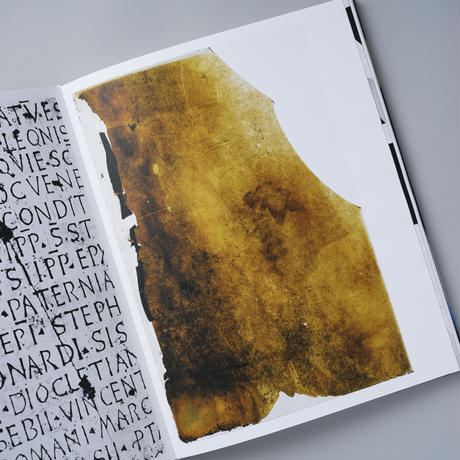 ATVES
LEONIS
QVIESC
OCVENE
CONDIT
IPP·S·ST
STI·PP·EPI
PATERNIA
EPI·STEPH
ONARDI·SIS
DIOCLETIAN
SEBII·VINCENT
ROMANI·MARC